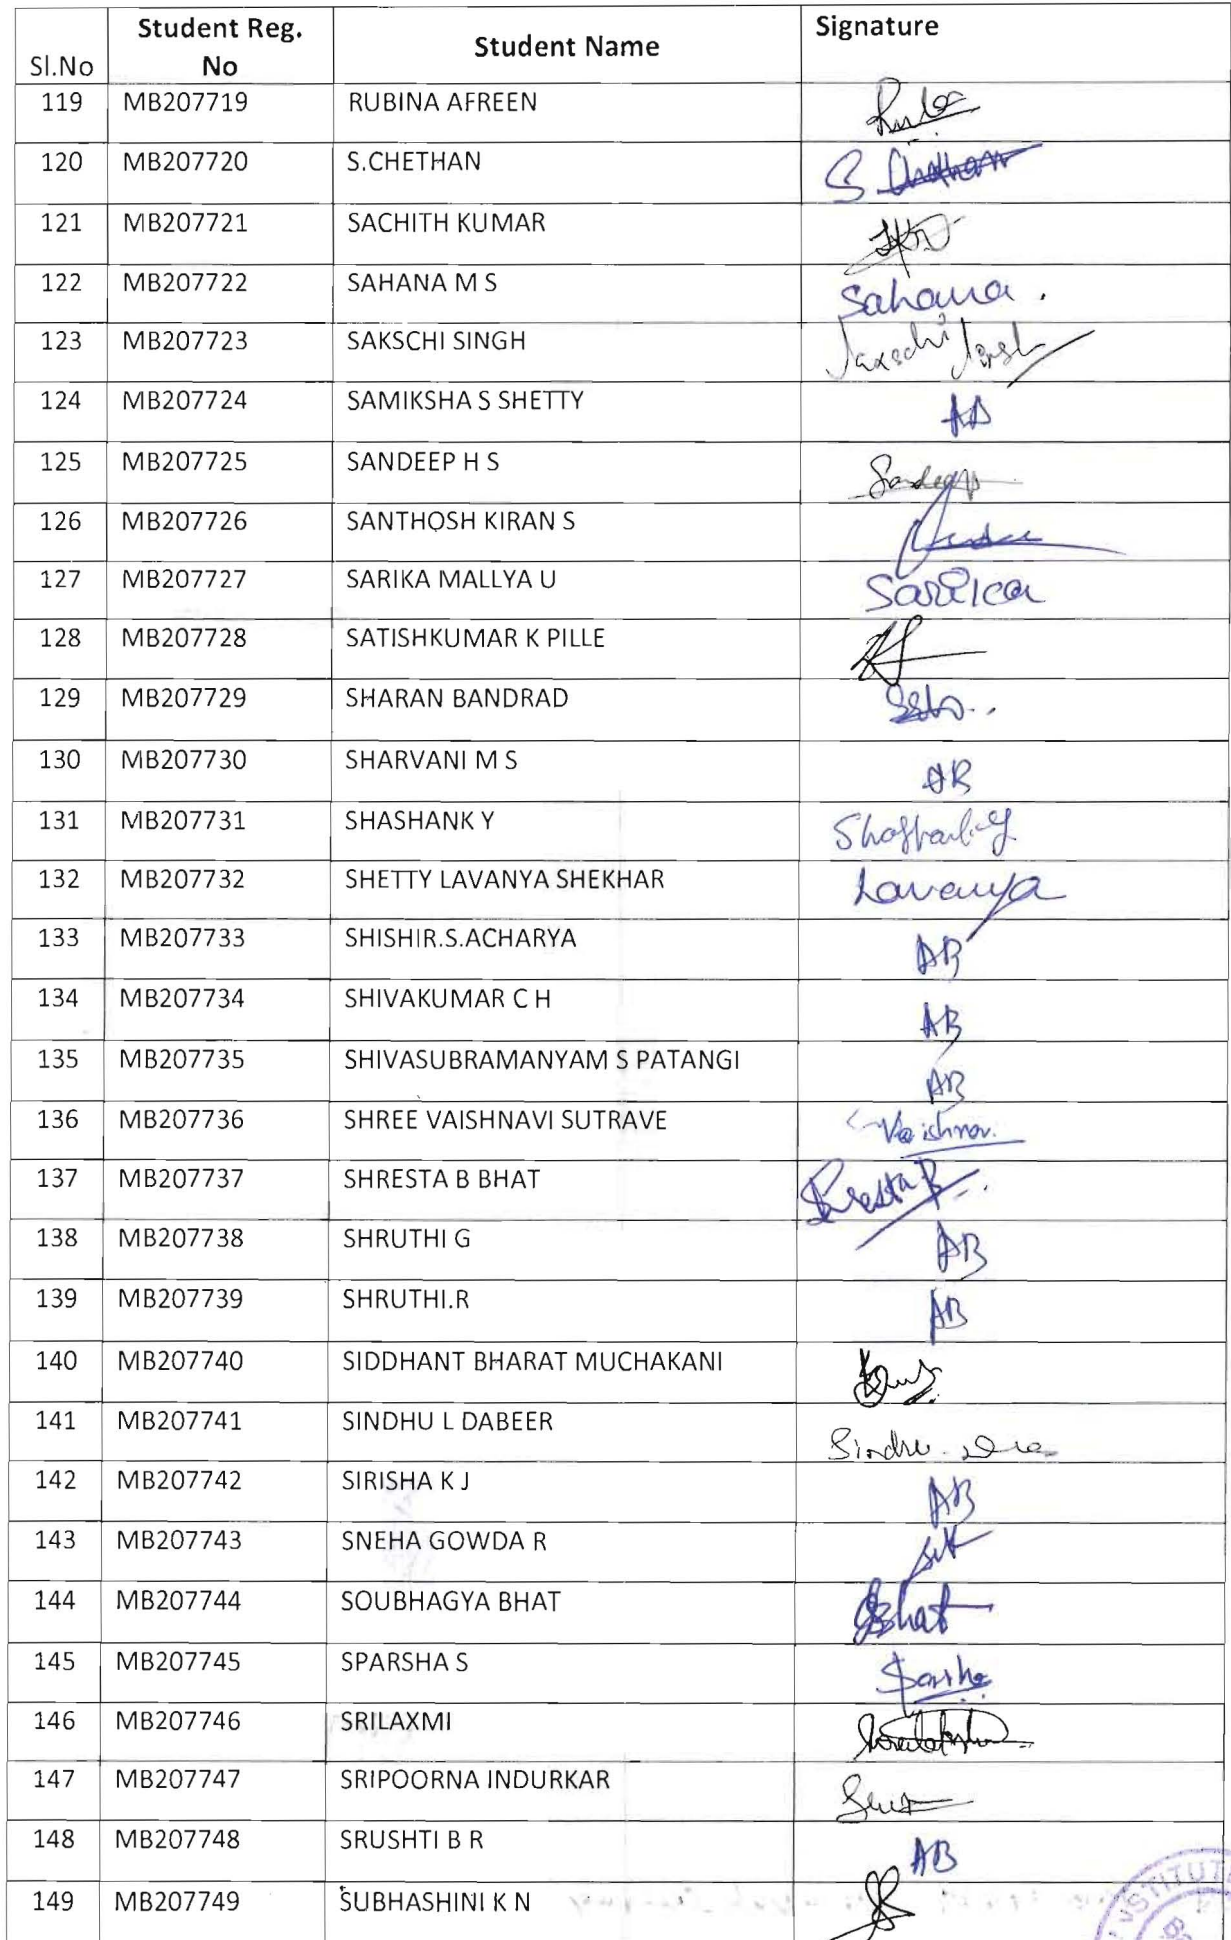 Sl.No Student Reg. No Student Name Signature
119 MB207719 RUBINA AFREEN
120 MB207720 S.CHETHAN S Chethan
121 MB207721 SACHITH KUMAR
122 MB207722 SAHANA M S Sahana.
123 MB207723 SAKSCHI SINGH Sakschi Singh
124 MB207724 SAMIKSHA S SHETTY AB
125 MB207725 SANDEEP H S Sandeep
126 MB207726 SANTHOSH KIRAN S
127 MB207727 SARIKA MALLYA U Sarika
128 MB207728 SATISHKUMAR K PILLE
129 MB207729 SHARAN BANDRAD
130 MB207730 SHARVANI M S AB
131 MB207731 SHASHANK Y Shashank.Y
132 MB207732 SHETTY LAVANYA SHEKHAR Lavanya
133 MB207733 SHISHIR.S.ACHARYA AB
134 MB207734 SHIVAKUMAR C H AB
135 MB207735 SHIVASUBRAMANYAM S PATANGI AB
136 MB207736 SHREE VAISHNAVI SUTRAVE Vaishnav.
137 MB207737 SHRESTA B BHAT Shresta B
138 MB207738 SHRUTHI G AB
139 MB207739 SHRUTHI.R AB
140 MB207740 SIDDHANT BHARAT MUCHAKANI
141 MB207741 SINDHU L DABEER Sindhu
142 MB207742 SIRISHA K J AB
143 MB207743 SNEHA GOWDA R
144 MB207744 SOUBHAGYA BHAT SBhat
145 MB207745 SPARSHA S
146 MB207746 SRILAXMI
147 MB207747 SRIPOORNA INDURKAR
148 MB207748 SRUSHTI B R AB
149 MB207749 SUBHASHINI K N